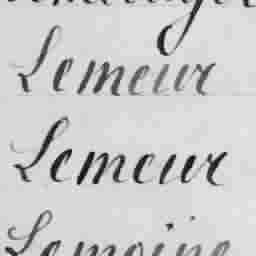 Lemeur
Lemeur
Lemoine